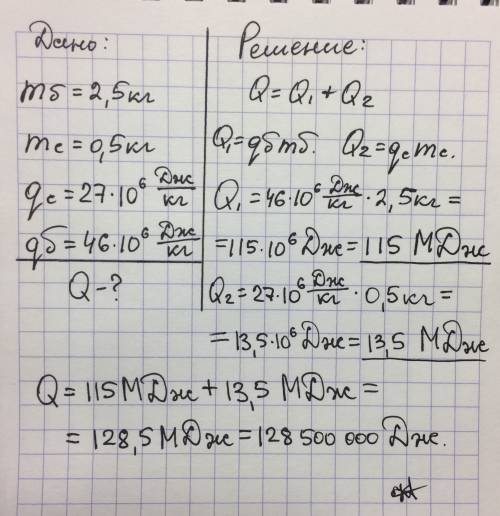 Дано:
mб = 2,5 кг
mс = 0,5 кг
qс = 27·10⁶ Дж/кг
qб = 46·10⁶ Дж/кг
Q - ?
Решение:
Q = Q₁ + Q₂
Q₁ = qб mб. Q₂ = qс mс.
Q₁ = 46·10⁶ Дж/кг · 2,5 кг =
= 115·10⁶ Дж = 115 МДж
Q₂ = 27·10⁶ Дж/кг · 0,5 кг =
= 13,5·10⁶ Дж = 13,5 МДж
Q = 115 МДж + 13,5 МДж =
= 128,5 МДж = 128 500 000 Дж.